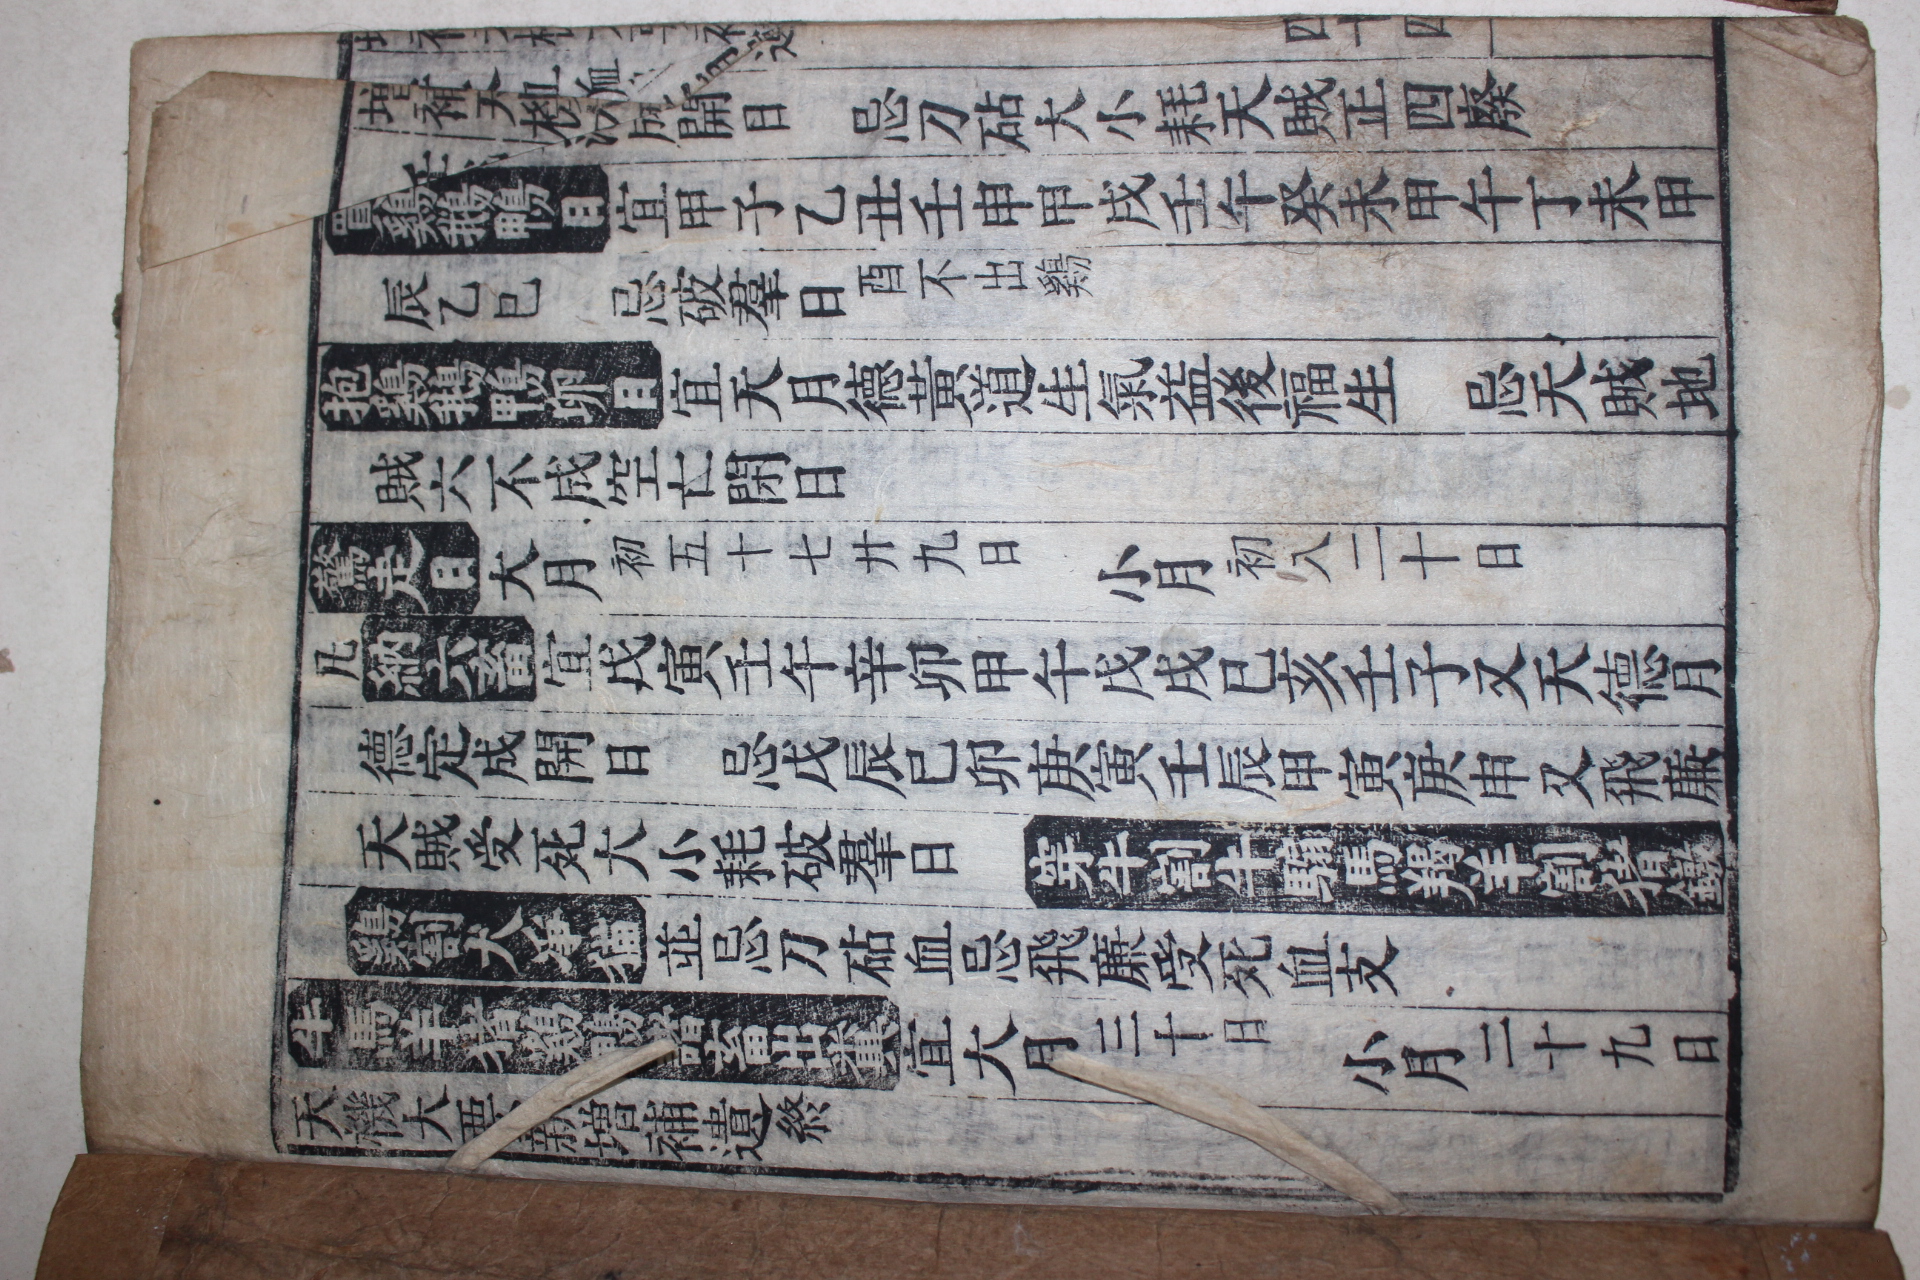 成開日　忌刀砧大小耗天賊正四廢
買鷄鵝鴨日宜甲子乙丑壬申甲戌壬午癸未甲午丁未甲
辰乙巳　忌破羣日酉不出鷄
抱鷄鵝鴨卵日宜天月德黃道生氣益後福生　忌天賊地
賊六不成空亡閉日
驚走日大月初五十七廿九日　小月初八二十日
凡納六畜宜戊寅壬午辛卯甲午戊戌巳亥壬子又天德月
德定成開日　忌戊辰巳卯庚寅壬辰甲寅庚申又飛廉
天賊受死大小耗破羣日　穿牛割牛騸馬羯羊割猪鐓
鷄割犬淨猫並忌刀砧血忌飛廉受死血支
牛馬羊猪鷄鴨諸畜出糞宜大月三十日　小月二十九日
天機大要新增補遺終
四十四